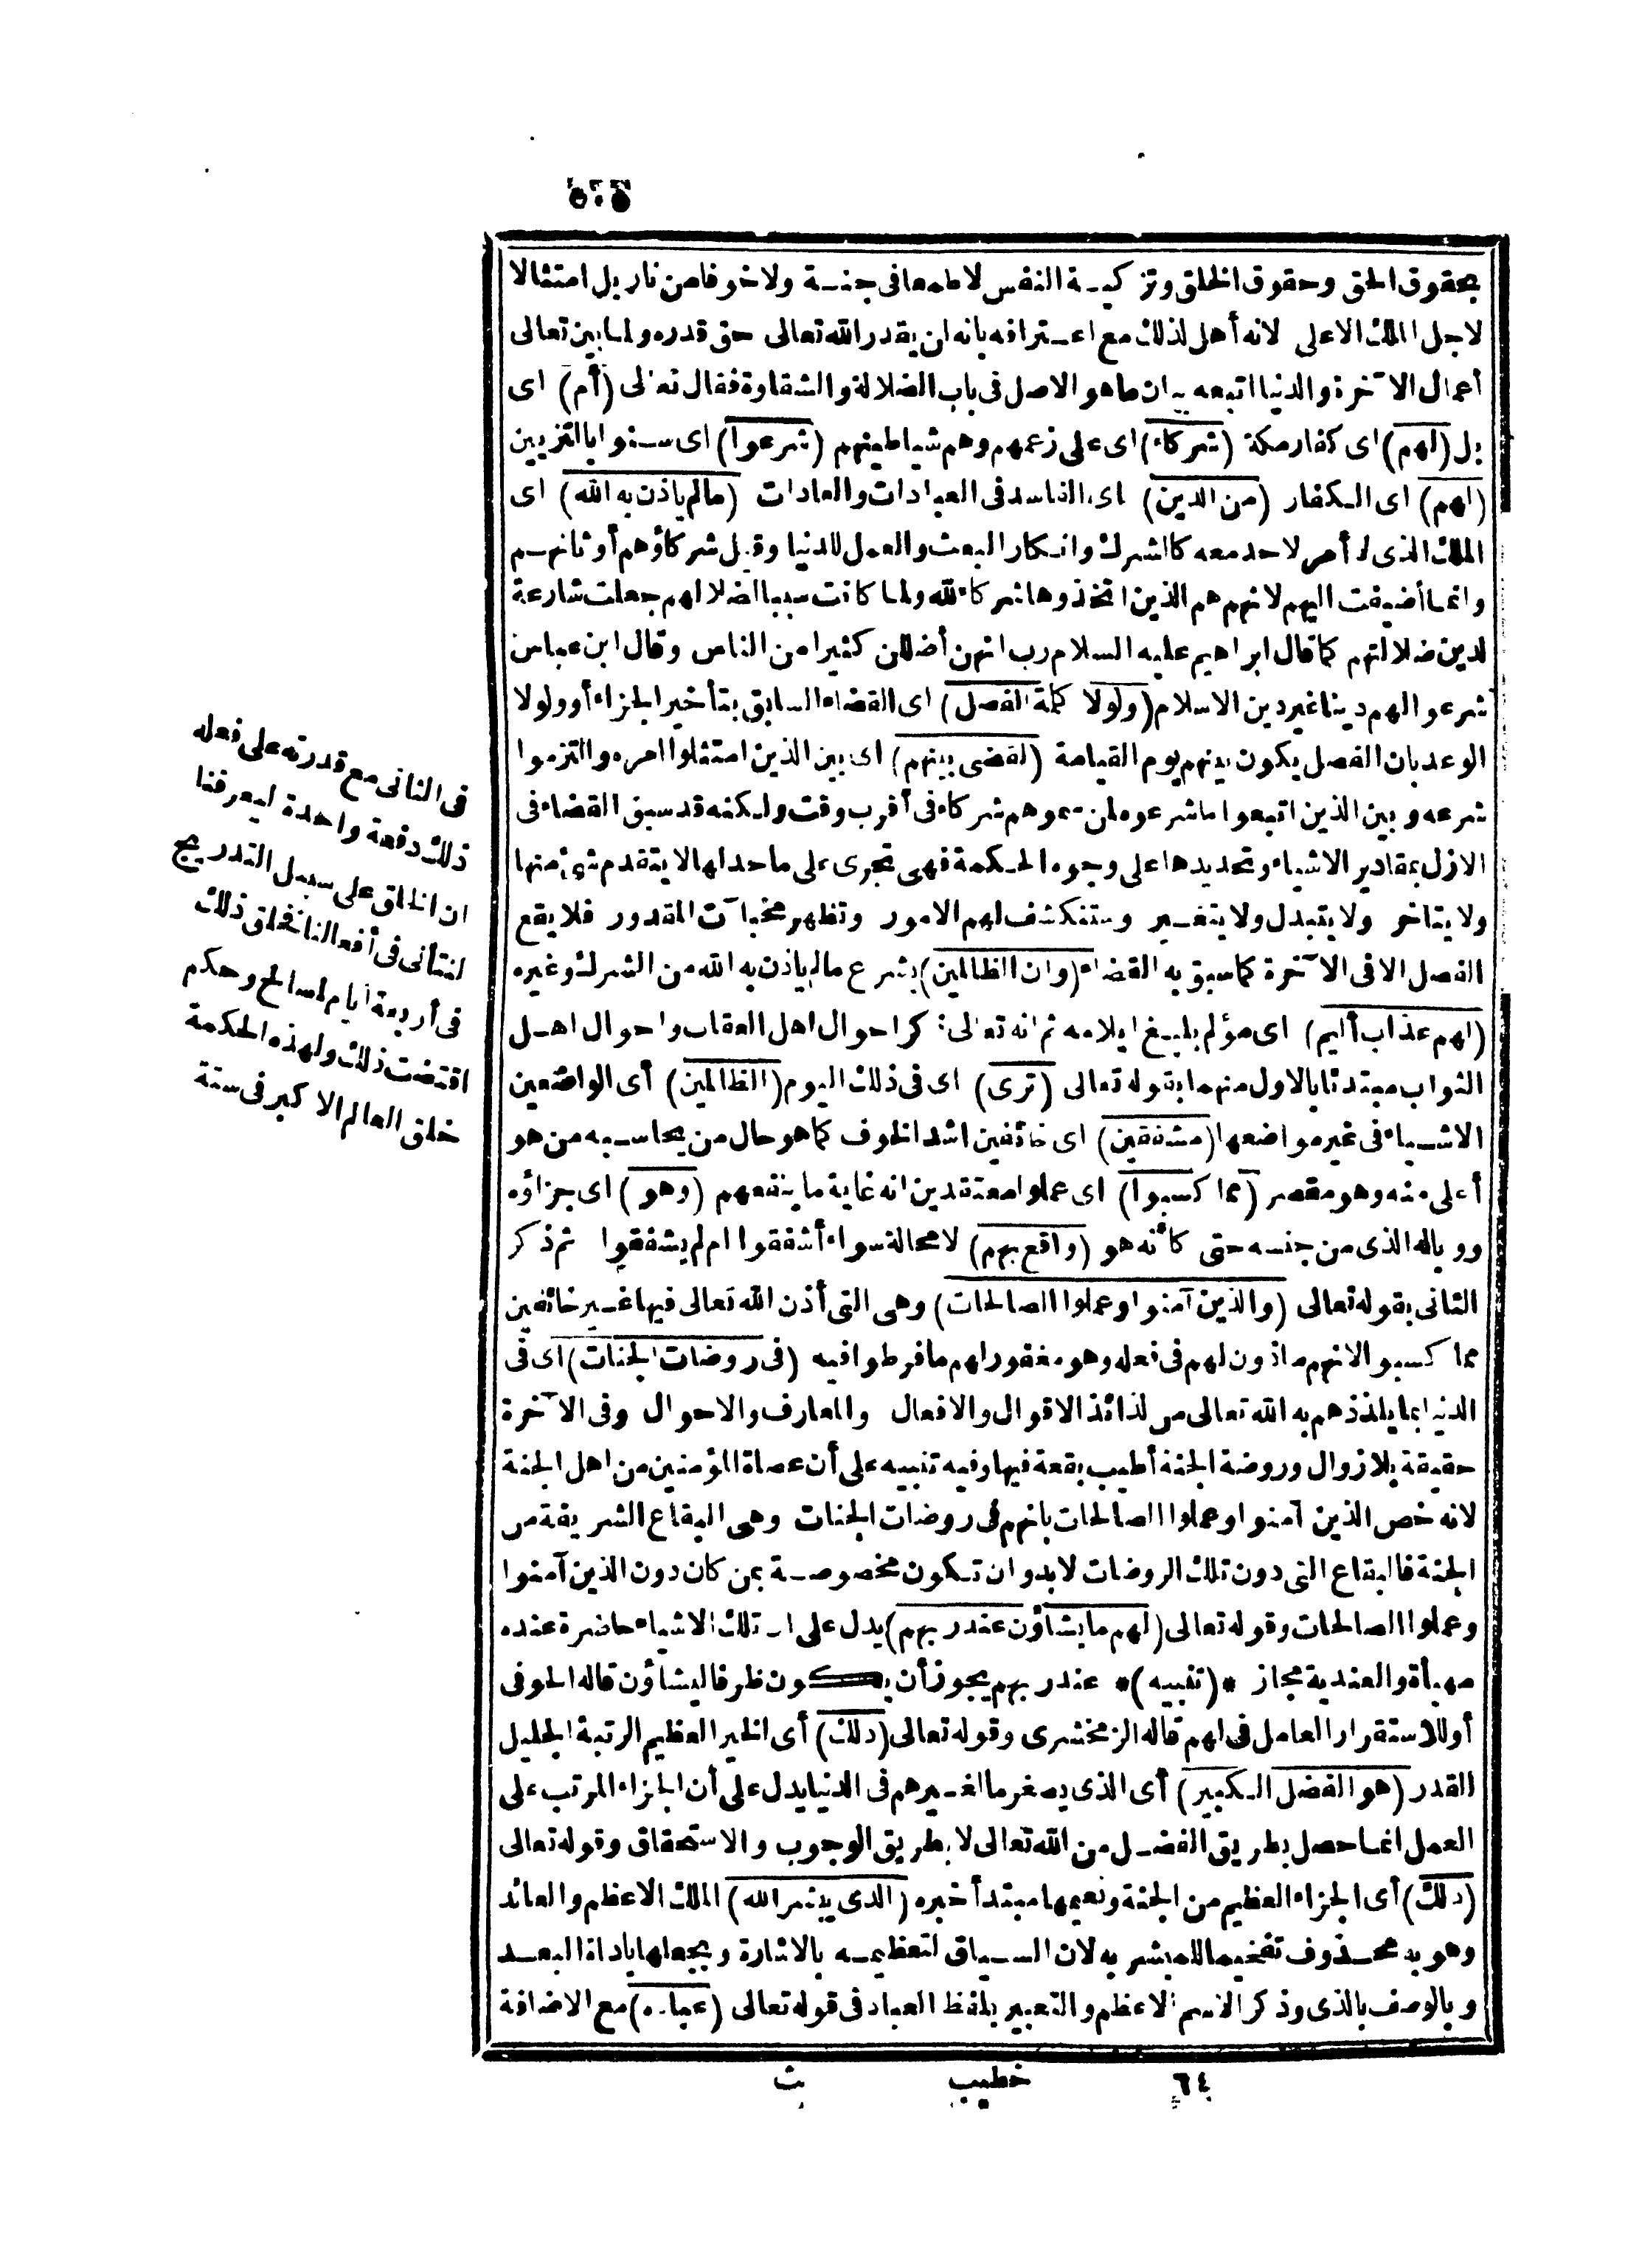 ٥٠٥
بحقوق الحق وحقوق الخلق وتزكية النفس لا طمعا فى جنة ولا خوفا من نار بل امتثالا
لاجل الملك الاعلى لانه أهل لذلك مع اعترافه بانه ان يقدر الله تعالى حق قدره ولما بين تعالى
أعمال الآخرة والدنيا اتبعه بيان ما هو الاصل فى باب الضلالة والشقاوة فقال تعالى (أم) اى
بل (لهم) اى كفار مكة (شركاء) اى على زعمهم وهم شياطينهم (شرعوا) اى سنوا بالتزيين
(لهم) اى الكفار (من الدين) اى الفاسد فى العبادات والعادات (ما لم ياذن به الله) اى
الملك الذى لا أمر لاحد معه كالشرك وانكار البعث والعمل للدنيا وقيل شركاؤهم أوثانهم
وانما أضيفت اليهم لانهم هم الذين اتخذوها شركاء لله ولما كانت سببا لضلالهم جعلت شارعة
لدين ضلالتهم كما قال ابراهيم عليه السلام رب انهن أضللن كثيرا من الناس وقال ابن عباس
شرعوا لهم دينا غير دين الاسلام (ولولا كلمة الفصل) اى القضاء السابق بتأخير الجزاء أو ولولا
الوعد بان الفصل يكون بينهم يوم القيامة (لقضى بينهم) اى بين الذين امتثلوا امره والتزموا
شرعه وبين الذين اتبعوا ما شرعوه لمن سموهم شركاء فى أقرب وقت ولكنه قد سبق القضاء فى
الازل بمقادير الاشياء وتحديدها على وجوه الحكمة فهى تجرى على ما حد لها لا يتقدم شئ منها
ولا يتاخر ولا يتبدل ولا يتغير وستنكشف لهم الامور وتظهر مخبآت المقدور فلا يقع
الفصل الا فى الآخرة كما سبق به القضاء (وان الظالمين) بشرع ما لم ياذن به الله من الشرك وغيره
(لهم عذاب أليم) اى مؤلم بليغ ايلامه ثم انه تعالى ذكر احوال اهل العقاب واحوال اهل
الثواب مبتدئا بالاول منهما بقوله تعالى (ترى) اى فى ذلك اليوم (الظالمين) أى الواضعين
الاشياء فى غير مواضعها (مشفقين) اى خائفين اشد الخوف كما هو حال من يحاسبه من هو
أعلى منه وهو مقصر (مما كسبوا) اى عملوا معتقدين انه غاية ما ينفعهم (وهو) اى جزاؤه
ووباله الذى من جنسه حتى كأنه هو (واقع بهم) لا محالة سواء أشفقوا ام لم يشفقوا ثم ذكر
الثانى بقوله تعالى (والذين آمنوا وعملوا الصالحات) وهى التى أذن الله تعالى فيها غير خائفين
مما كسبوا لانهم ماذون لهم فى فعله وهو مغفور لهم ما فرطوا فيه (فى روضات الجنات) اى فى
الدنيا بما يلذذهم به الله تعالى من لذائذ الاقوال والافعال والمعارف والاحوال وفى الآخرة
حقيقة بلا زوال وروضة الجنة أطيب بقعة فيها وفيه تنبيه على أن عصاة المؤمنين من اهل الجنة
لانه خص الذين آمنوا وعملوا الصالحات بانهم فى روضات الجنات وهى البقاع الشريفة من
الجنة فالبقاع التى دون تلك الروضات لا بد وان تكون مخصوصة بمن كان دون الذين آمنوا
وعملوا الصالحات وقوله تعالى (لهم ما يشاؤن عند ربهم) يدل على ان تلك الاشياء حاضرة عنده
مهيأة والعندية مجاز *(تنبيه)* عند ربهم يجوز أن يكون ظرفا ليشاؤن قاله الحوفى
أو للاستقرار العامل فى لهم قاله الزمخشرى وقوله تعالى (ذلك) أى الخير العظيم الرتبة الجليل
القدر (هو الفضل الكبير) أى الذى يصغر ما لغيرهم فى الدنيا يدل على أن الجزاء المرتب على
العمل انما حصل بطريق الفضل من الله تعالى لا بطريق الوجوب والاستحقاق وقوله تعالى
(ذلك) أى الجزاء العظيم من الجنة ونعيمها مبتدأ خبره (الذى يبشر الله) الملك الاعظم والعائد
وهو به محذوف تفخيما للمبشر به لان السياق لتعظيمه بالاشارة وبجعلها باداة البعد
وبالوصف بالذى وذكر الاسم الاعظم والتعبير بلفظ العباد فى قوله تعالى (عباده) مع الاضافة
٦٤ خطيب ث
فى الثانى مع قدرته على فعله
ذلك دفعة واحدة ليعرفنا
ان الخلق على سبيل التدريج
لنتأنى فى أفعالنا فخلق ذلك
فى أربعة أيام لمصالح وحكم
اقتضت ذلك ولهذه الحكمة
خلق العالم الاكبر فى ستة